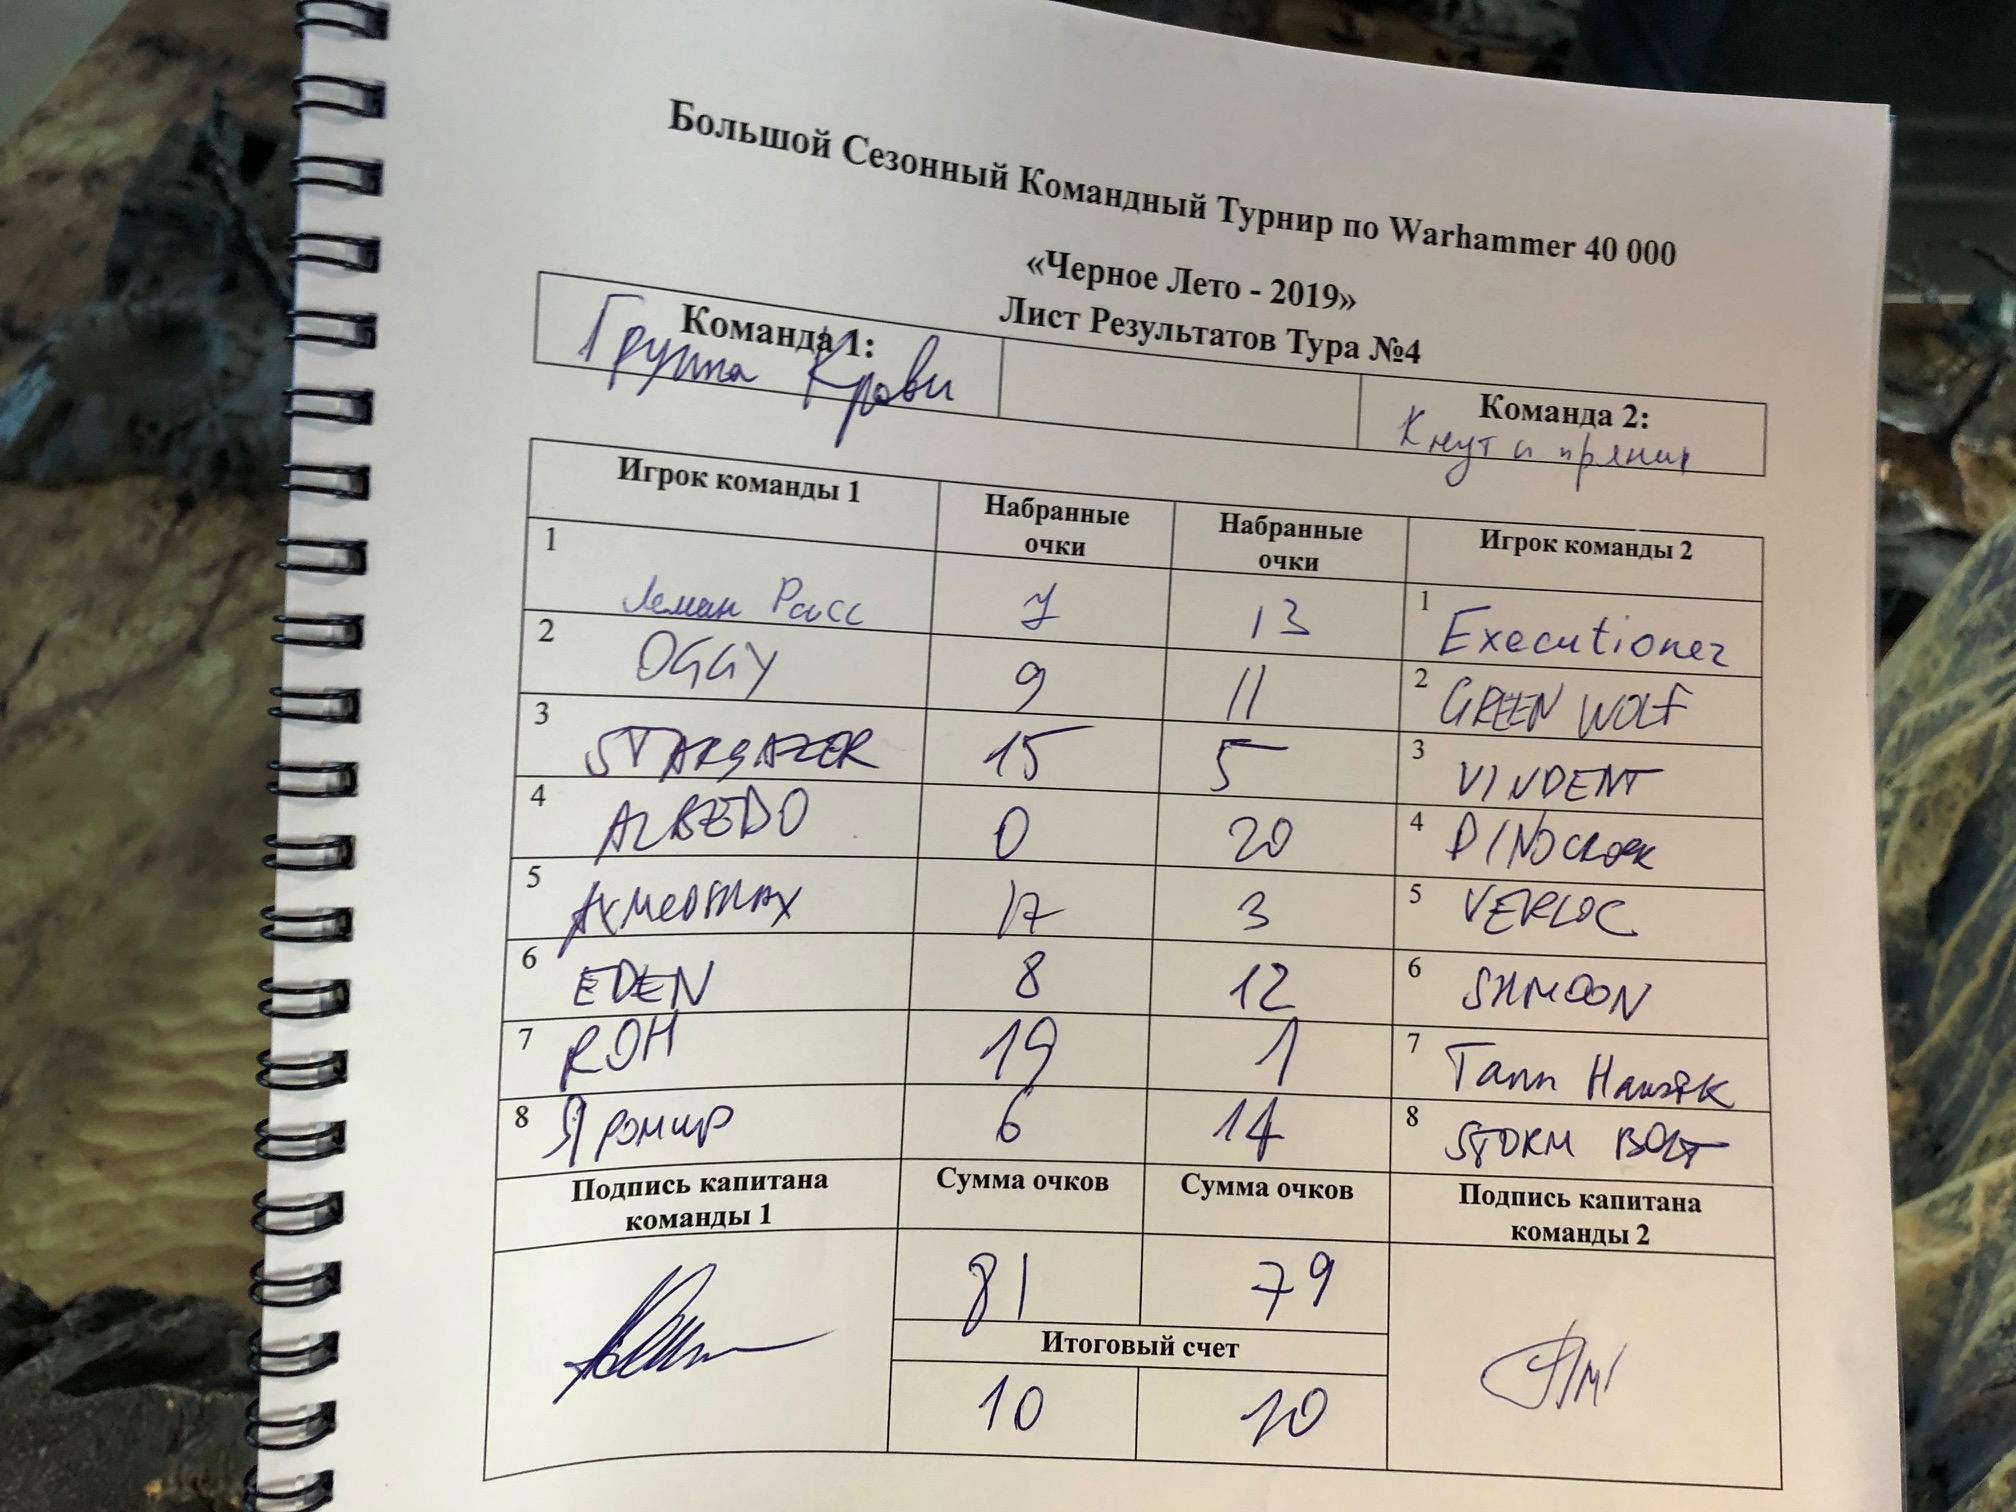 Большой Сезонный Командный Турнир по Warhammer 40 000
«Черное Лето - 2019»
Лист Результатов Тура №4
Команда 1:
Группа Крови
Команда 2:
Кнут и пряник
Игрок команды 1 Набранные очки Набранные очки Игрок команды 2
1 Леман Расс 7 13 1 Executioner
2 OGGY 9 11 2 GREEN WOLF
3 STARGAZER 15 5 3 VINDENT
4 ALBEDO 0 20 4
5 17 3 5 VERLOC
6 EDEN 8 12 6 SHMOON
7 ROH 19 1 7 Tann
8 Яромир 6 14 8 STORM BOLT
Подпись капитана команды 1 Сумма очков Сумма очков Подпись капитана команды 2
81 79
Итоговый счет
10 10